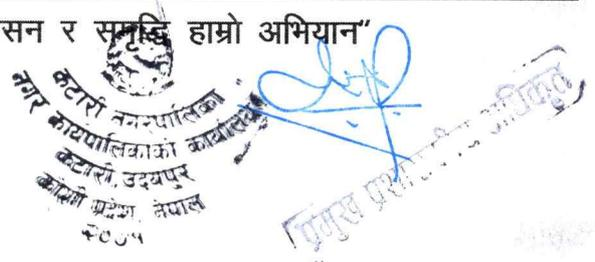 सन र समृद्धि हाम्रो अभियान"
कटारी नगरपालिका
नगर कार्यपालिकाको कार्यालय
कटारी, उदयपुर
कोशी प्रदेश, नेपाल
२०७५
प्रमुख प्रशासकीय अधिकृत